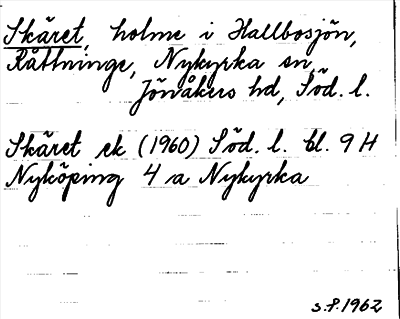 Skäret, holme i Hallbosjön,
Råttninge, Nykyrka sn,
Jönåkers hd, Söd. l.
Skäret ek (1960) Söd. l. bl. 9 H
Nyköping 4 a Nykyrka
s.f. 1962